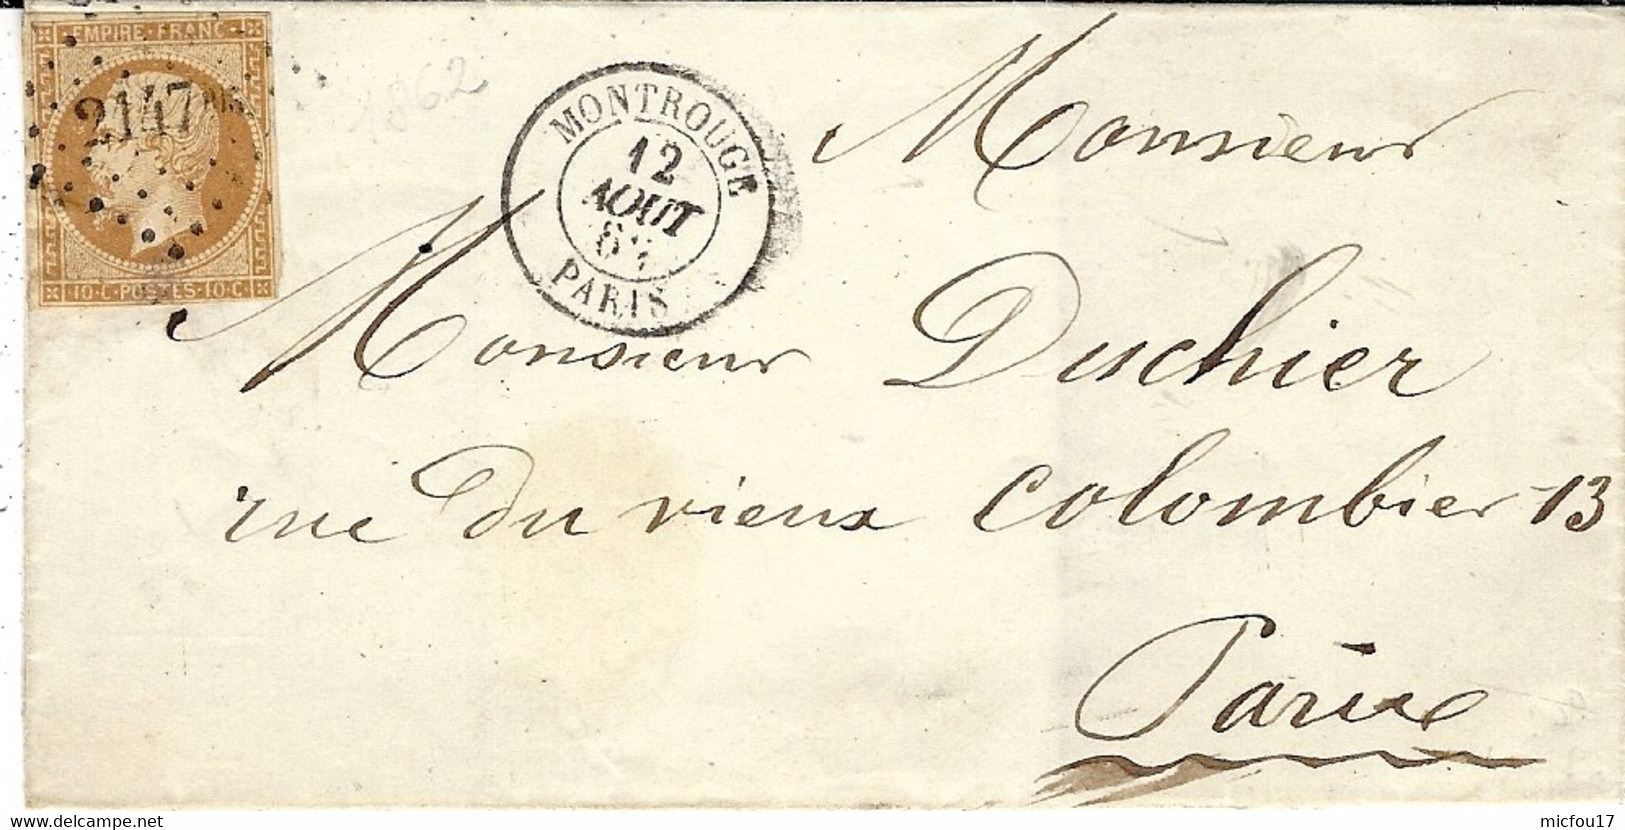 EMPIRE FRANC
2147 BIS
10·C·POSTES·10·C·
1862
MONTROUGE
12
AOUT
PARIS
Monsieur
Monsieur Duchier
rue du vieux colombier 13
Paris
delcampe.net
micfou17